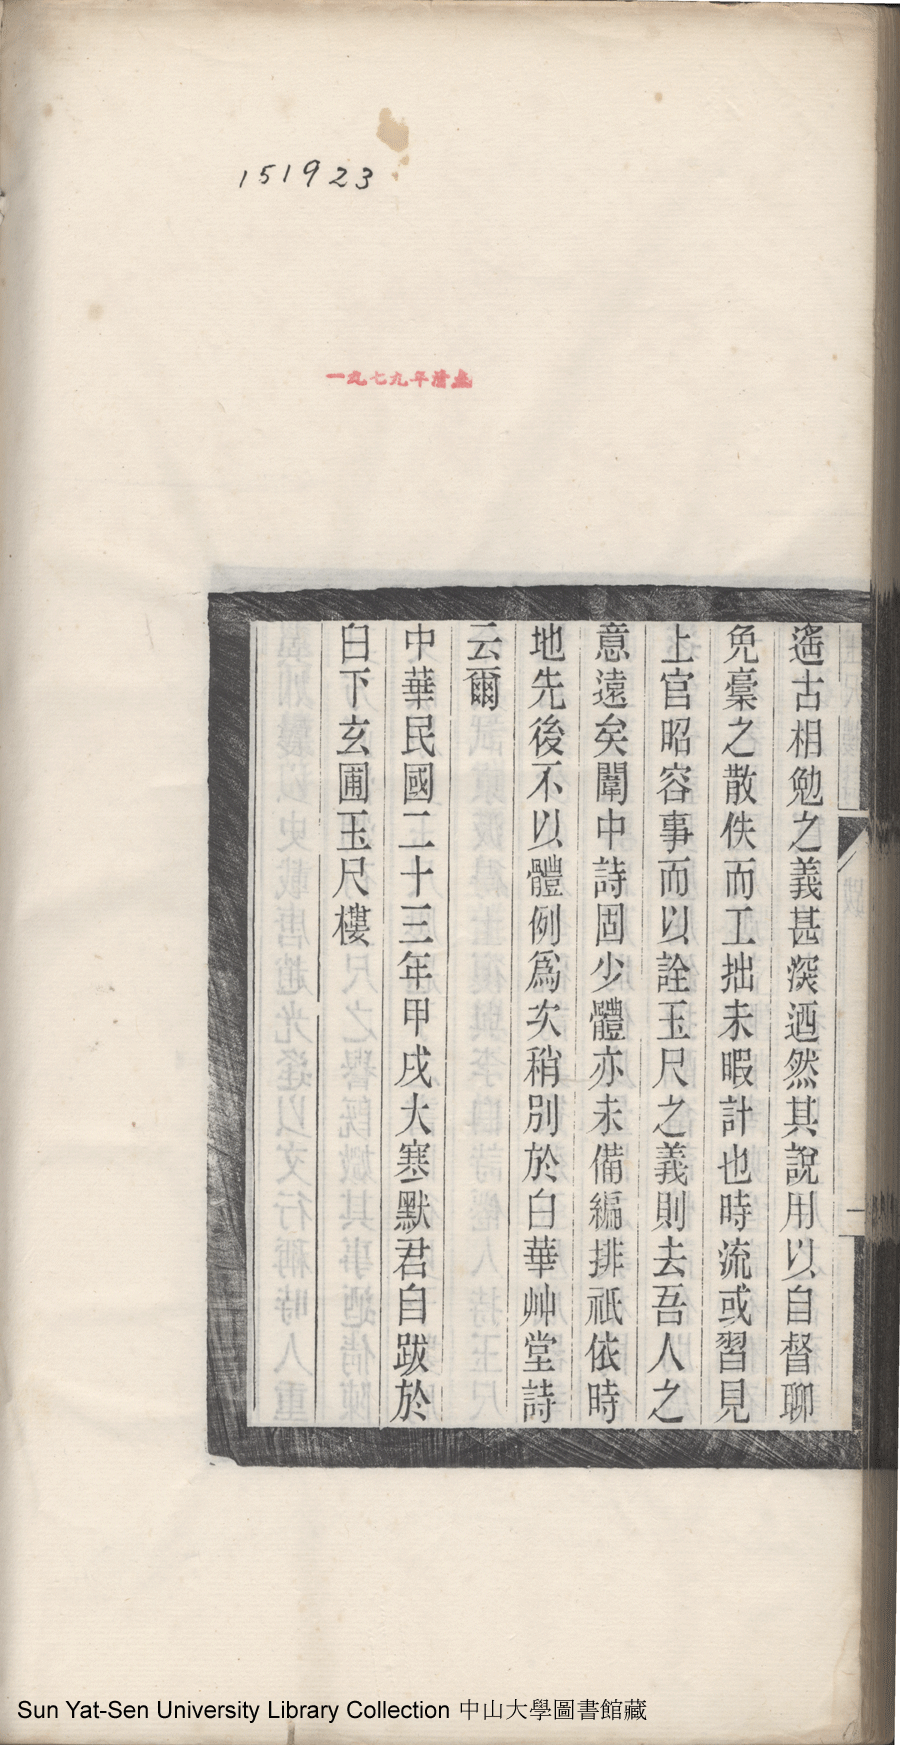 151923
一九七九年清点
遙古相勉之義甚深迺然其說用以自督聊
免稾之散佚而工拙未暇計也時流或習見
上官昭容事而以詮玉尺之義則去吾人之
意遠矣闈中詩固少體亦未備編排祇依時
地先後不以體例爲次稍別於白華艸堂詩
云爾
中華民國二十三年甲戌大寒默君自跋於
白下玄圃玉尺樓
一
Sun Yat-Sen University Library Collection 中山大學圖書館藏